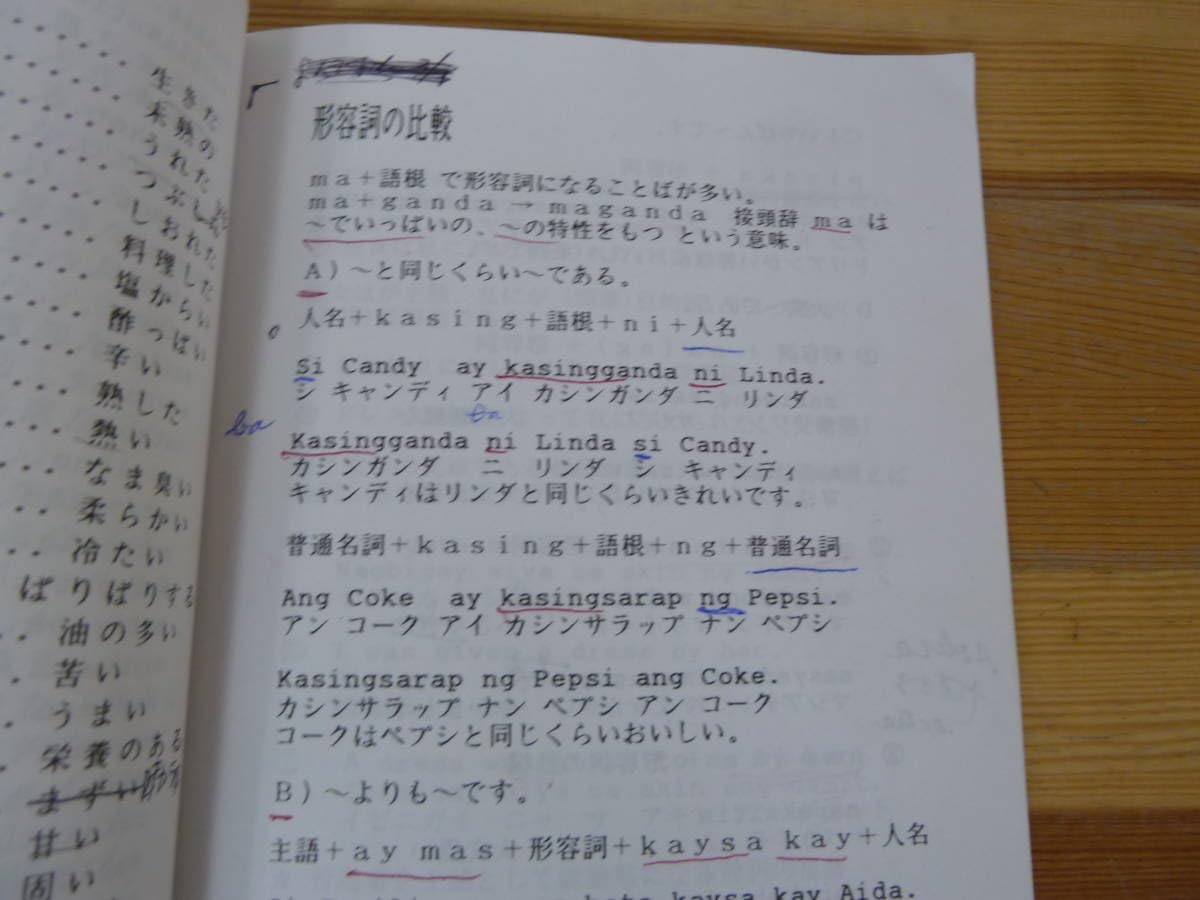 生きた
未熟の
うれた
つぶした
しおれた
料理した
塩からい
酢っぱい
辛い
熟した
熱い
なま臭い
柔らかい
冷たい
ぱりぱりする
油の多い
苦い
うまい
栄養のある
まずい
甘い
固い
形容詞の比較
ma+語根 で形容詞になることばが多い。
ma+ganda → maganda 接頭辞 ma は
～でいっぱいの、～の特性をもつ という意味。
A)～と同じくらい～である。
人名+kasing+語根+ni+人名
Si Candy ay kasingganda ni Linda.
シ キャンディ アイ カシンガンダ ニ リンダ
ba
Kasingganda ni Linda si Candy.
カシンガンダ ニ リンダ シ キャンディ
キャンディはリンダと同じくらいきれいです。
普通名詞+kasing+語根+ng+普通名詞
Ang Coke ay kasingsarap ng Pepsi.
アン コーク アイ カシンサラップ ナン ペプシ
Kasingsarap ng Pepsi ang Coke.
カシンサラップ ナン ペプシ アン コーク
コークはペプシと同じくらいおいしい。
B)～よりも～です。
主語+ay mas+形容詞+kaysa kay+人名
kaysa kay Aida.